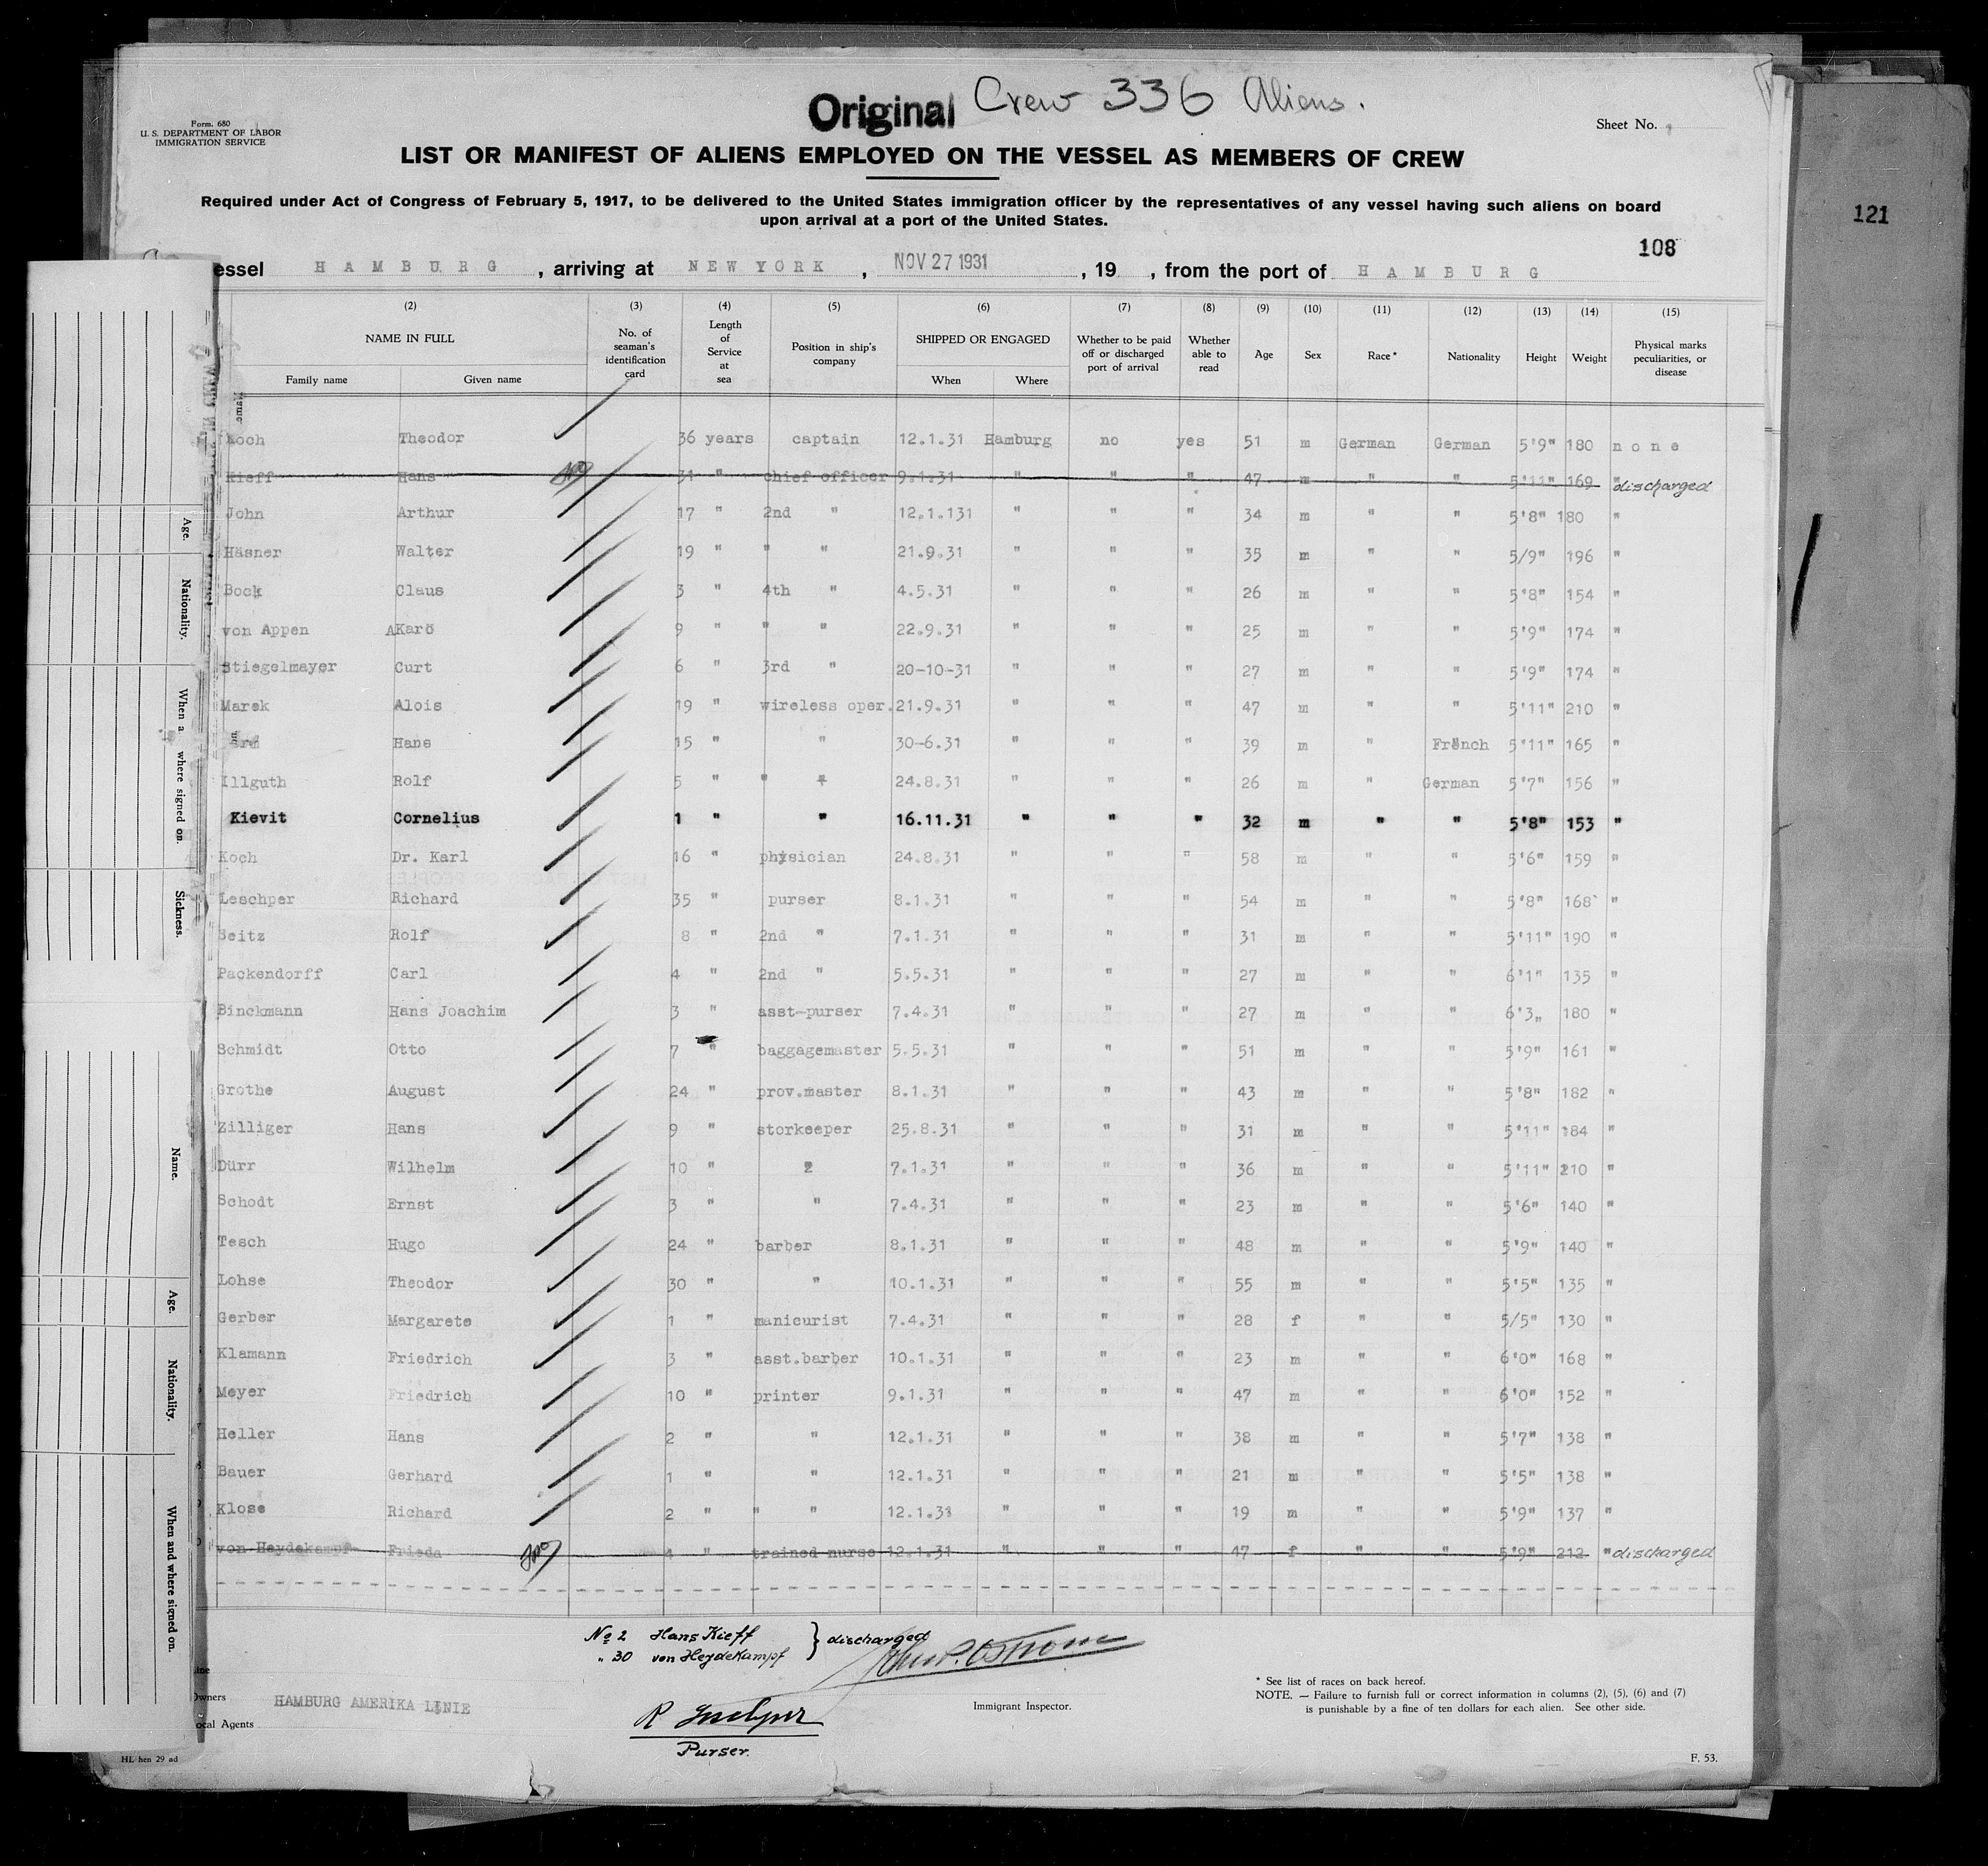 Original Crew 336 Aliens.
Form. 680
U. S. DEPARTMENT OF LABOR
IMMIGRATION SERVICE
Sheet No.
LIST OR MANIFEST OF ALIENS EMPLOYED ON THE VESSEL AS MEMBERS OF CREW
Required under Act of Congress of February 5, 1917, to be delivered to the United States immigration officer by the representatives of any vessel having such aliens on board
upon arrival at a port of the United States.
121
108
essel HAMBURG, arriving at NEW YORK, NOV 27 1931, 19 , from the port of HAMBURG
(2) (3) (4) (5) (6) (7) (8) (9) (10) (11) (12) (13) (14) (15)
NAME IN FULL No. of seaman's identification card Length of Service at sea Position in ship's company SHIPPED OR ENGAGED Whether to be paid off or discharged port of arrival Whether able to read Age Sex Race* Nationality Height Weight Physical marks peculiarities, or disease
Family name Given name When Where
Koch Theodor 36 years captain 12.1.31 Hamburg no yes 51 m German German 5'9" 180 none
Kieff Hans 31 " chief officer 9.1.31 " " " 47 m " " 5'11" 169 " discharged
John Arthur 17 " 2nd " 12.1.131 " " " 34 m " " 5'8" 180 "
Häsner Walter 19 " " " 21.9.31 " " " 35 m " " 5/9" 196 "
Bock Claus 3 " 4th " 4.5.31 " " " 26 m " " 5'8" 154 "
von Appen AKaro 9 " " " 22.9.31 " " " 25 m " " 5'9" 174 "
Stiegelmayer Curt 6 " 3rd " 20-10-31 " " " 27 m " " 5'9" 174 "
Marek Alois 19 " wireless oper. 21.9.31 " " " 47 m " " 5'11" 210 "
Hans 15 " " 30-6.31 " " " 39 m " French 5'11" 165 "
Illguth Rolf 5 " " " 24.8.31 " " " 26 m " German 5'7" 156 "
Kievit Cornelius 1 " " 16.11.31 " " " 32 m " " 5'8" 153 "
Koch Dr. Karl 16 " physician 24.8.31 " " " 58 m " " 5'6" 159 "
Leschper Richard 35 " purser 8.1.31 " " " 54 m " " 5'8" 168 "
Seitz Rolf 8 " 2nd " 7.1.31 " " " 31 m " " 5'11" 190 "
Packendorff Carl 4 " 2nd " 5.5.31 " " " 27 m " " 6'1" 135 "
Binckmann Hans Joachim 3 " asst-purser 7.4.31 " " " 27 m " " 6'3„ 180 "
Schmidt Otto 7 " baggagemaster 5.5.31 " " " 51 m " " 5'9" 161 "
Grothe August 24 " prov.master 8.1.31 " " " 43 m " " 5'8" 182 "
Zilliger Hans 9 " storkeeper 25.8.31 " " " 31 m " " 5'11" 184 "
Dürr Wilhelm 10 " " 7.1.31 " " " 36 m " " 5'11" 210 "
Schodt Ernst 3 " " 7.4.31 " " " 23 m " " 5'6" 140 "
Tesch Hugo 24 " barber 8.1.31 " " " 48 m " " 5'9" 140 "
Lohse Theodor 30 " " 10.1.31 " " " 55 m " " 5'5" 135 "
Gerber Margarete 1 " manicurist 7.4.31 " " " 28 f " " 5/5" 130 "
Klamann Friedrich 3 " asst.barber 10.1.31 " " " 23 m " " 6'0" 168 "
Meyer Friedrich 10 " printer 9.1.31 " " " 47 m " " 6'0" 152 "
Heller Hans 2 " " 12.1.31 " " " 38 m " " 5'7" 138 "
Bauer Gerhard 1 " " 12.1.31 " " " 21 m " " 5'5" 138 "
Klose Richard 2 " " " 12.1.31 " " " 19 m " " 5'9" 137 "
von Heydekampf Frieda 4 " trained nurse 12.1.31 " " " 47 f " " 5'9" 212 " discharged
No 2 Hans Kieff } discharged
" 30 von Heydekampf
Immigrant Inspector.
wners HAMBURG AMERIKA LINIE
ocal Agents
R Leschper
Purser.
* See list of races on back hereof.
NOTE. — Failure to furnish full or correct information in columns (2), (5), (6) and (7)
is punishable by a fine of ten dollars for each alien. See other side.
HL hen 29 ad
F. 53.
Age.
Nationality.
When a where signed on.
Sickness.
Name.
Age.
Nationality.
When and where signed on.